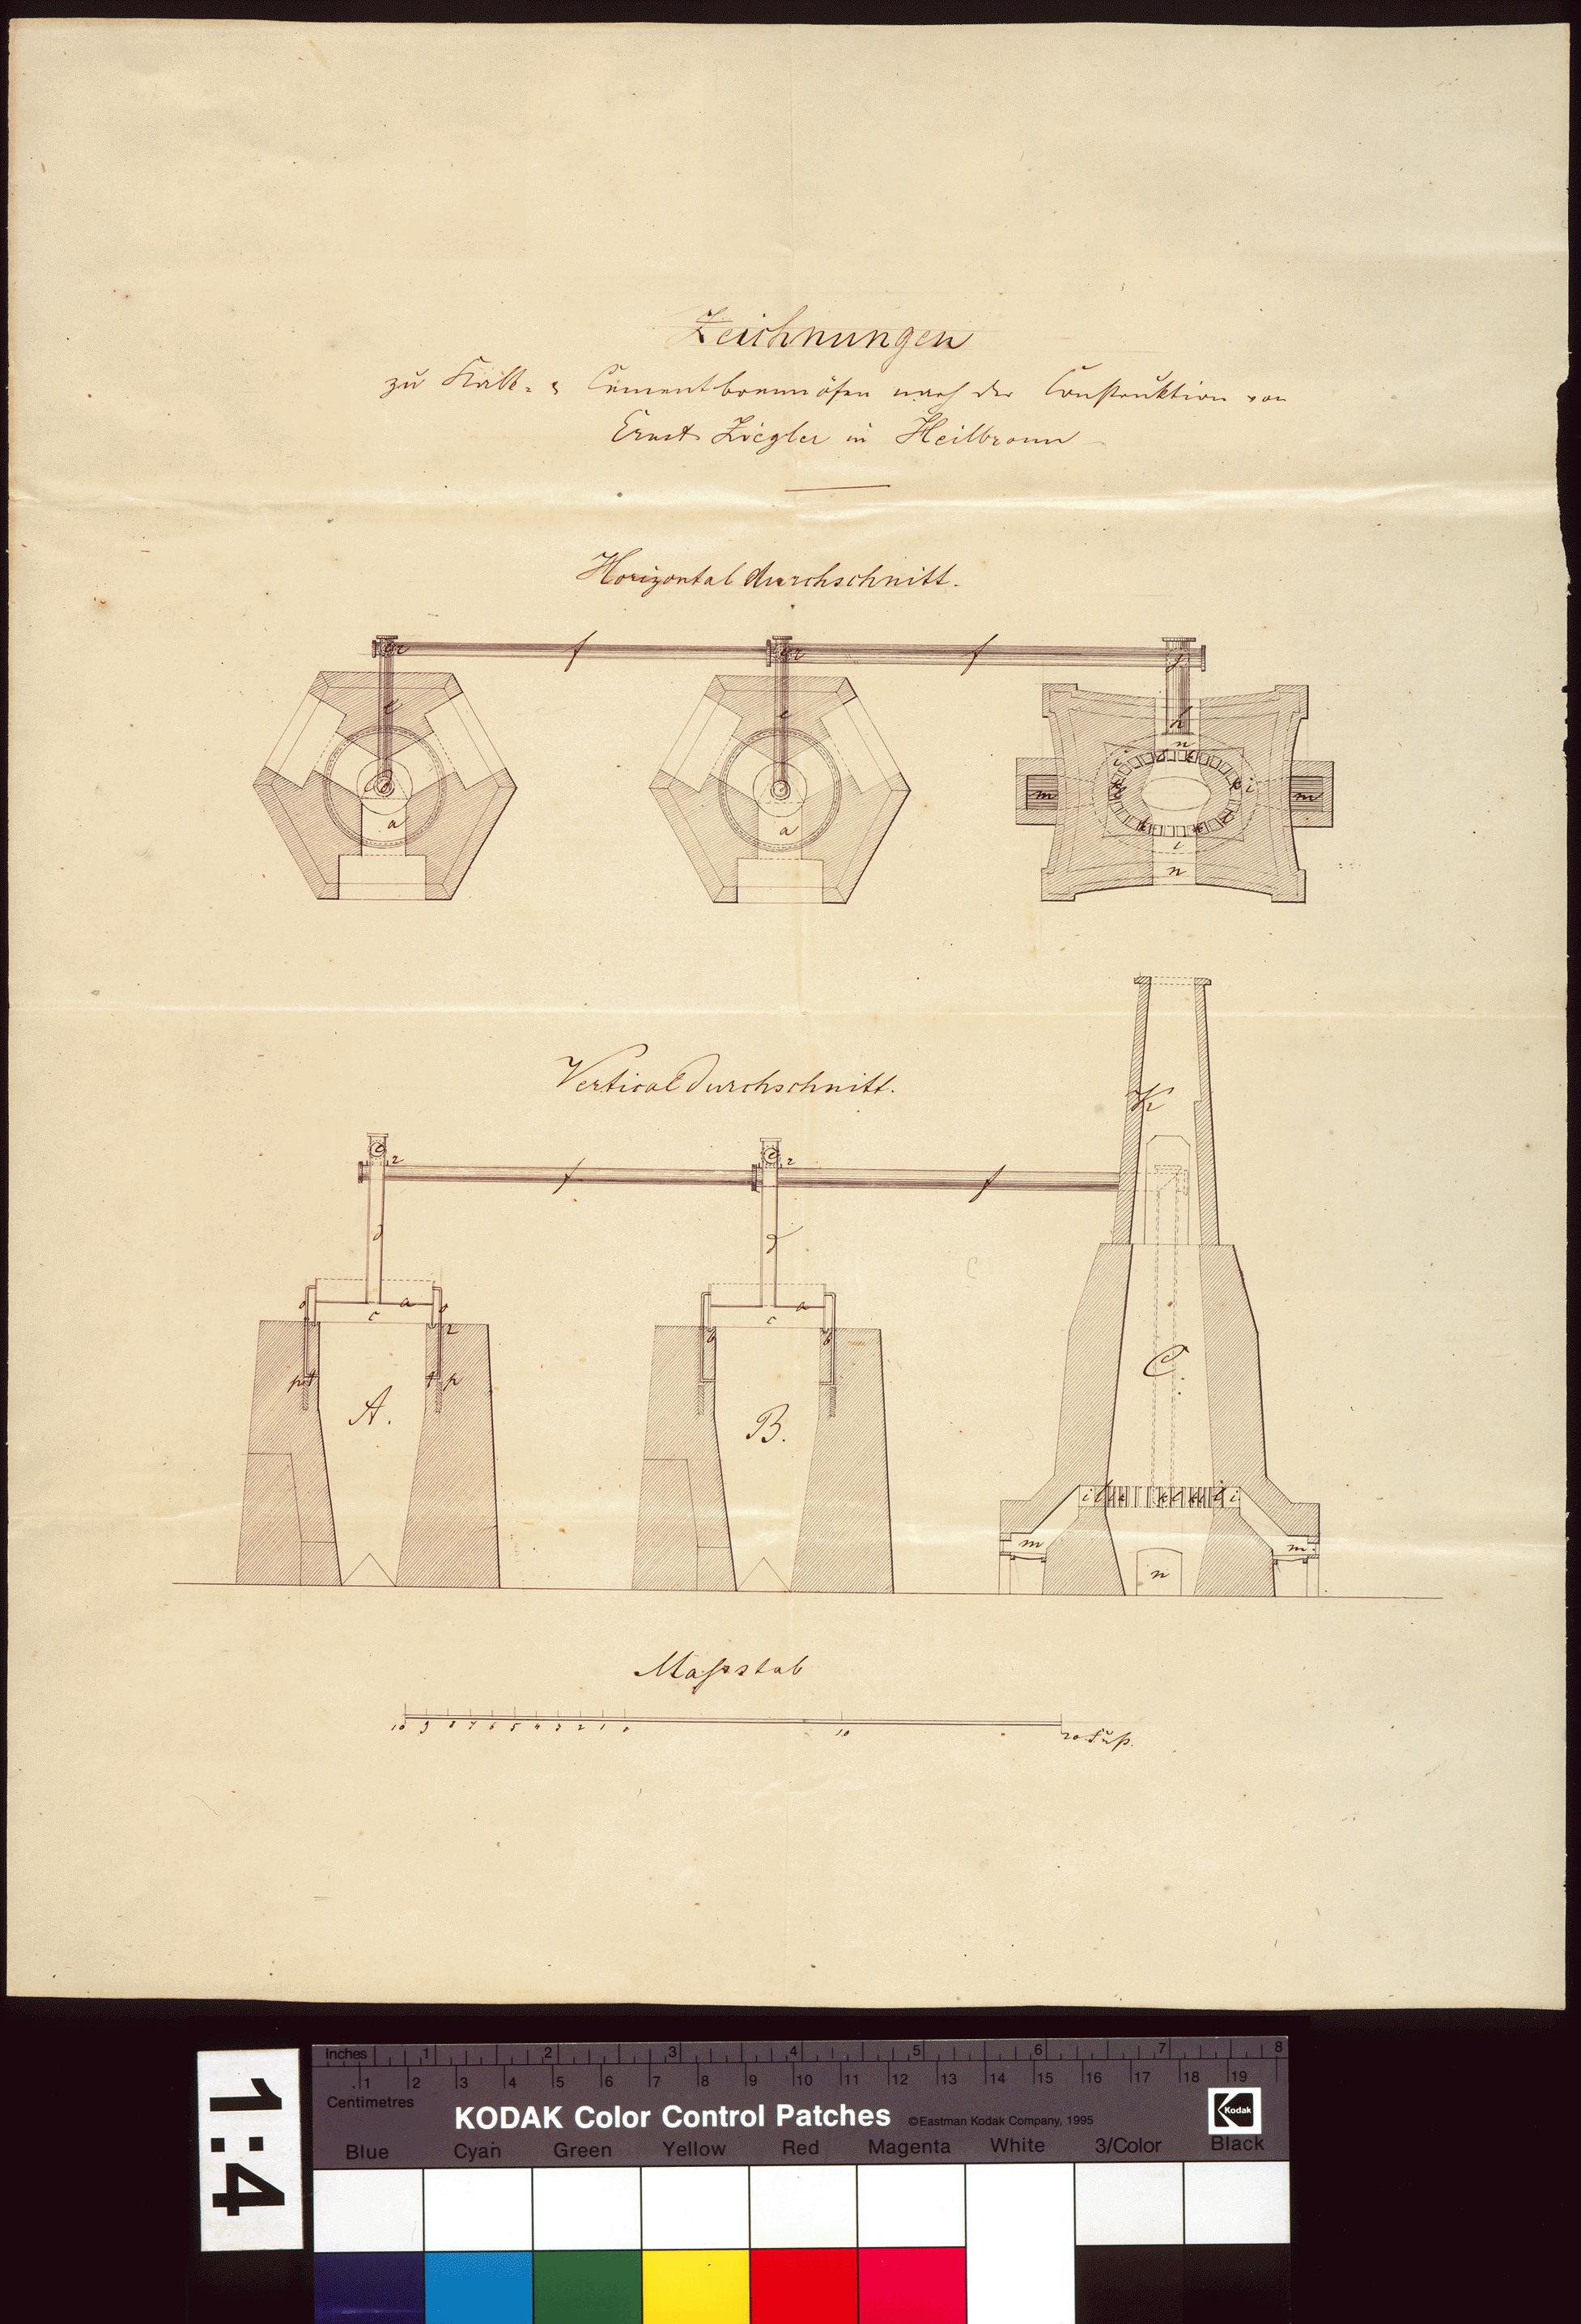 Zeichnungen
zu Kalk- & Cementbrennöfen nach der Construktion von
Ernst Ziegler in Heilbronn
Horizontaldurchschnitt.
r f r f f
e e h
n
i k k i
m m
a a
i
n
n
Vertical Durchschnitt.
K
e r e r
f f
d d
o a o a
c c
r
b b
p t t p
A. B. C.
i l k k l k l i
m m
n
Maßstab
10 9 8 7 6 5 4 3 2 1 0 10 20 Fuß.
1:4
Inches 1 2 3 4 5 6 7 8
1 2 3 4 5 6 7 8 9 10 11 12 13 14 15 16 17 18 19
Centimetres
KODAK Color Control Patches ©Eastman Kodak Company, 1995 Kodak
Blue Cyan Green Yellow Red Magenta White 3/Color Black